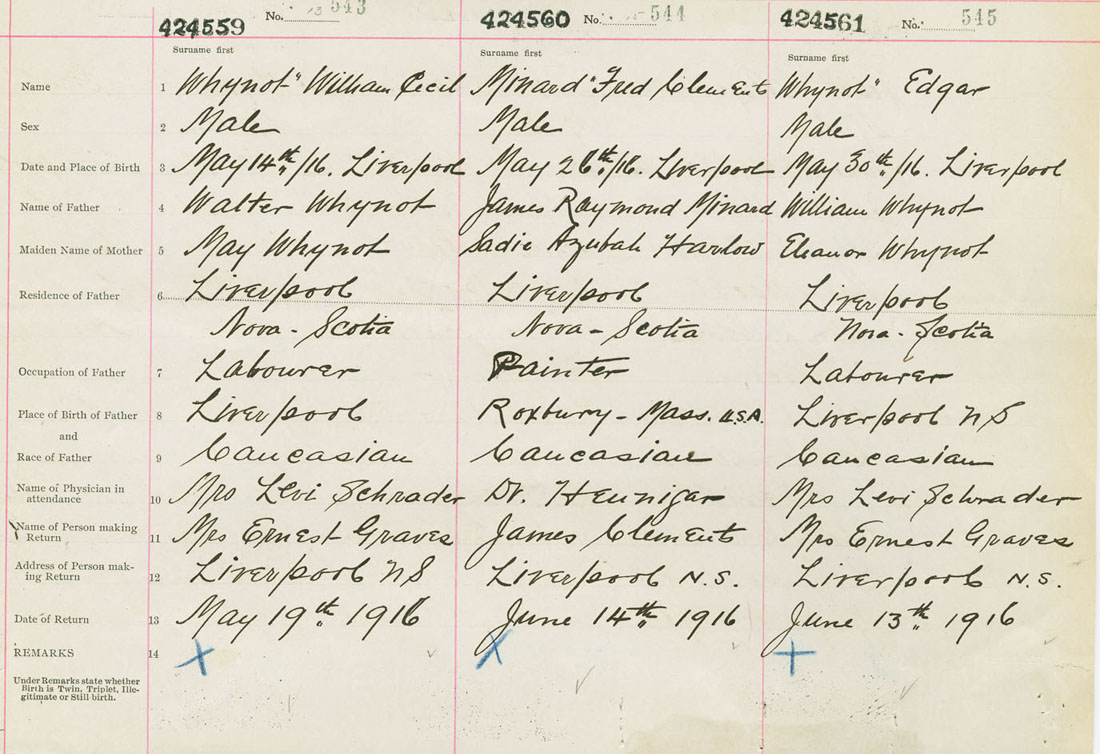 543 544 545
424559 No. 424560 No. 424561 No.
Surname first Surname first Surname first
Name 1 Whynot" William Cecil Minard "Fred Clements Whynot" Edgar
Sex 2 Male Male Male
Date and Place of Birth 3 May 14th/16. Liverpool May 26th/16. Liverpool May 30th/16. Liverpool
Name of Father 4 Walter Whynot James Raymond Minard William Whynot
Maiden Name of Mother 5 May Whynot Sadie Azubah Harlow Eleanor Whynot
Residence of Father 6 Liverpool Liverpool Liverpool
Nova - Scotia Nova - Scotia Nova - Scotia
Occupation of Father 7 Labourer Painter Labourer
Place of Birth of Father 8 Liverpool Roxbury - Mass. U.S.A. Liverpool NS
and
Race of Father 9 Caucasian Caucasian Caucasian
Name of Physician in
attendance 10 Mrs Levi Schrader Dr. Hennigar Mrs Levi Schrader
Name of Person making
Return 11 Mrs Ernest Graves James Clements Mrs Ernest Graves
Address of Person mak-
ing Return 12 Liverpool NS Liverpool N.S. Liverpool N.S.
Date of Return 13 May 19th 1916 June 14th 1916 June 13th 1916
REMARKS 14
Under Remarks state whether
Birth is Twin, Triplet, Ille-
gitimate or Still birth.